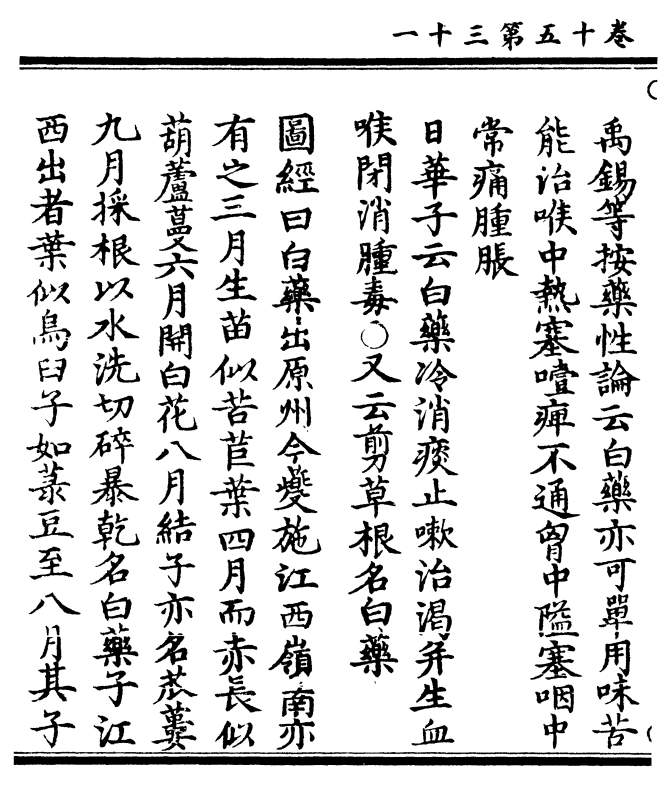 卷十五第三十一
禹錫等按藥性論云白藥亦可單用味苦
能治喉中熱塞噎痺不通胷中隘塞咽中
常痛腫脹
日華子云白藥冷消痰止嗽治渴并生血
喉閉消腫毒〇又云剪草根名白藥
圖經曰白藥出原州今夔施江西嶺南亦
有之三月生苗似苦苣葉四月而赤長似
葫蘆蔓六月開白花八月結子亦名苽蔞
九月採根以水洗切碎暴乾名白藥子江
西出者葉似烏臼子如菉豆至八月其子